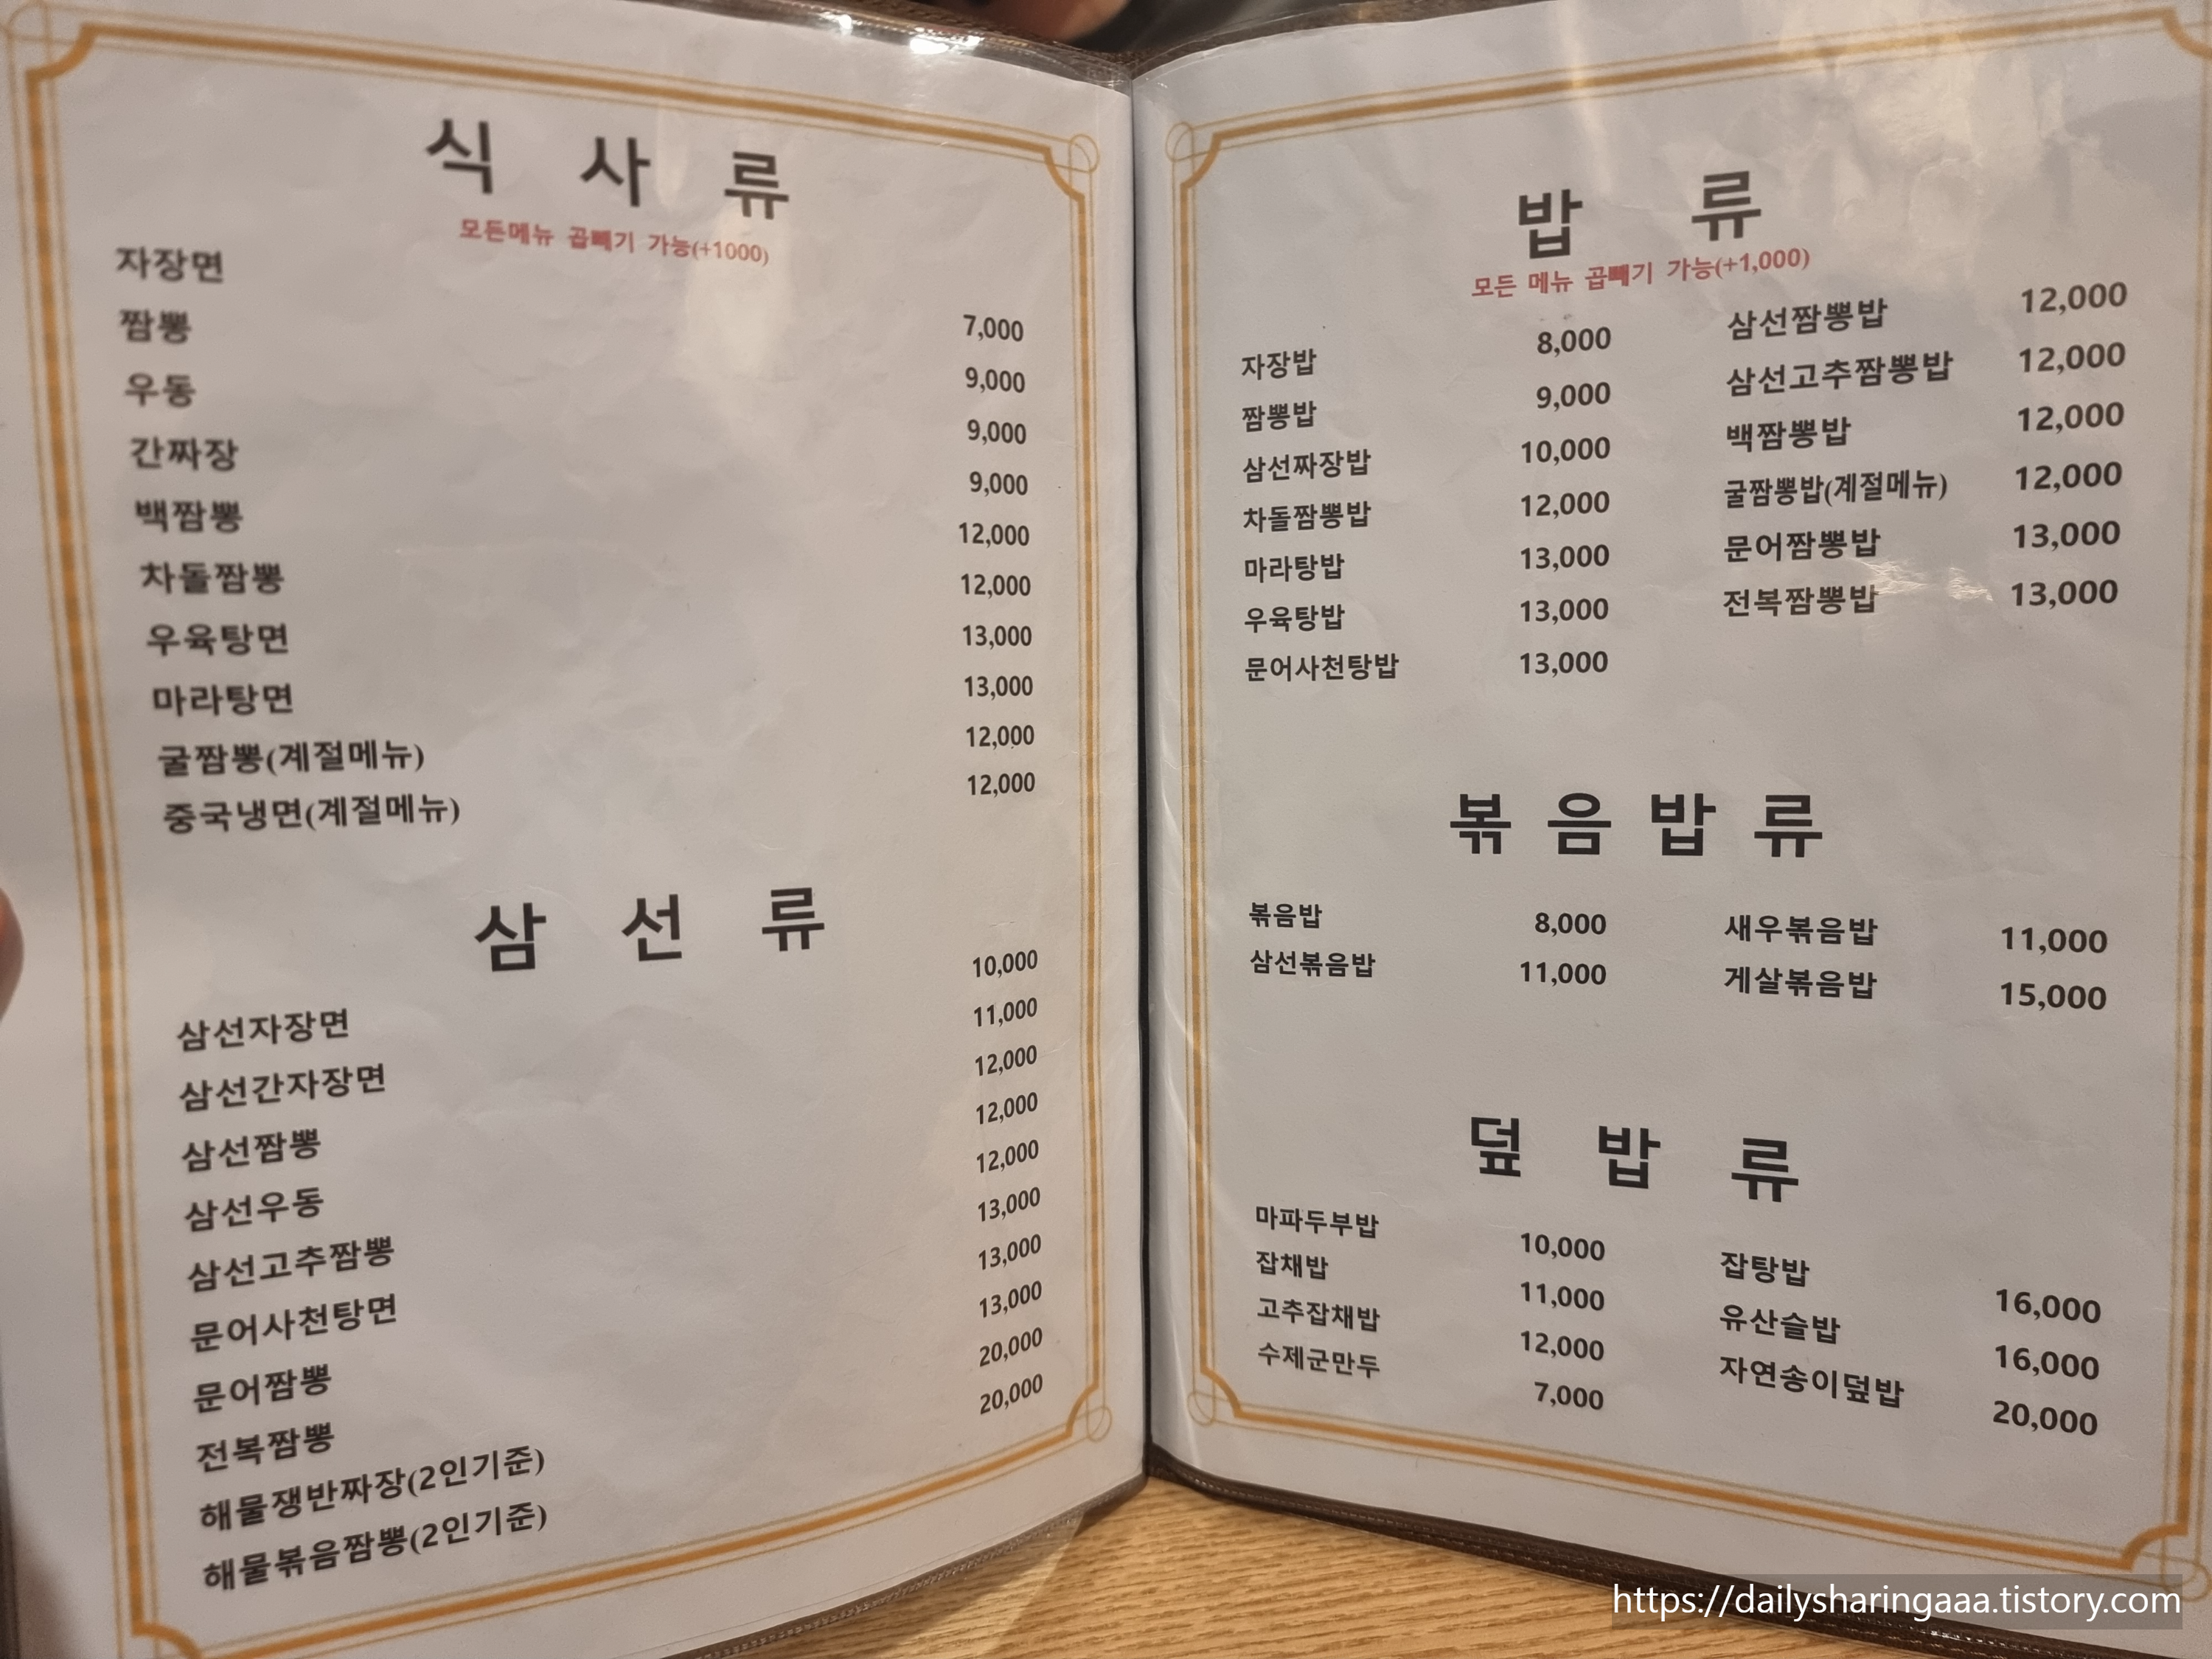 식 사 류
모든메뉴 곱빼기 가능(+1000)
자장면 7,000
짬뽕 9,000
우동 9,000
간짜장 9,000
백짬뽕 12,000
차돌짬뽕 12,000
우육탕면 13,000
마라탕면 13,000
굴짬뽕(계절메뉴) 12,000
중국냉면(계절메뉴) 12,000
삼 선 류
삼선자장면 10,000
삼선간자장면 11,000
삼선짬뽕 12,000
삼선우동 12,000
삼선고추짬뽕 12,000
문어사천탕면 13,000
문어짬뽕 13,000
전복짬뽕 13,000
해물쟁반짜장(2인기준) 20,000
해물볶음짬뽕(2인기준) 20,000
밥 류
모든 메뉴 곱빼기 가능(+1,000)
자장밥 8,000 삼선짬뽕밥 12,000
짬뽕밥 9,000 삼선고추짬뽕밥 12,000
삼선짜장밥 10,000 백짬뽕밥 12,000
차돌짬뽕밥 12,000 굴짬뽕밥(계절메뉴) 12,000
마라탕밥 13,000 문어짬뽕밥 13,000
우육탕밥 13,000 전복짬뽕밥 13,000
문어사천탕밥 13,000
볶음밥류
볶음밥 8,000 새우볶음밥 11,000
삼선볶음밥 11,000 게살볶음밥 15,000
덮 밥 류
마파두부밥 10,000 잡탕밥 16,000
잡채밥 11,000 유산슬밥 16,000
고추잡채밥 12,000 자연송이덮밥 20,000
수제군만두 7,000
https://dailysharingaaa.tistory.com